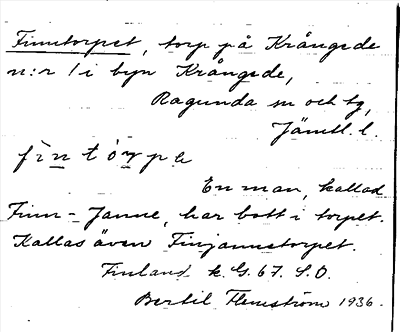 Finntorpet, torp på Krångede
n:r 1 i byn Krångede,
Ragunda sn och tg,
Jämtl. l.
fìn tòrpe
En man, kallad
Finn-Janne, har bott i torpet.
Kallas även Finjannetorpet.
Finland k. G. 67. S.O.
Bertil Flemström 1936.